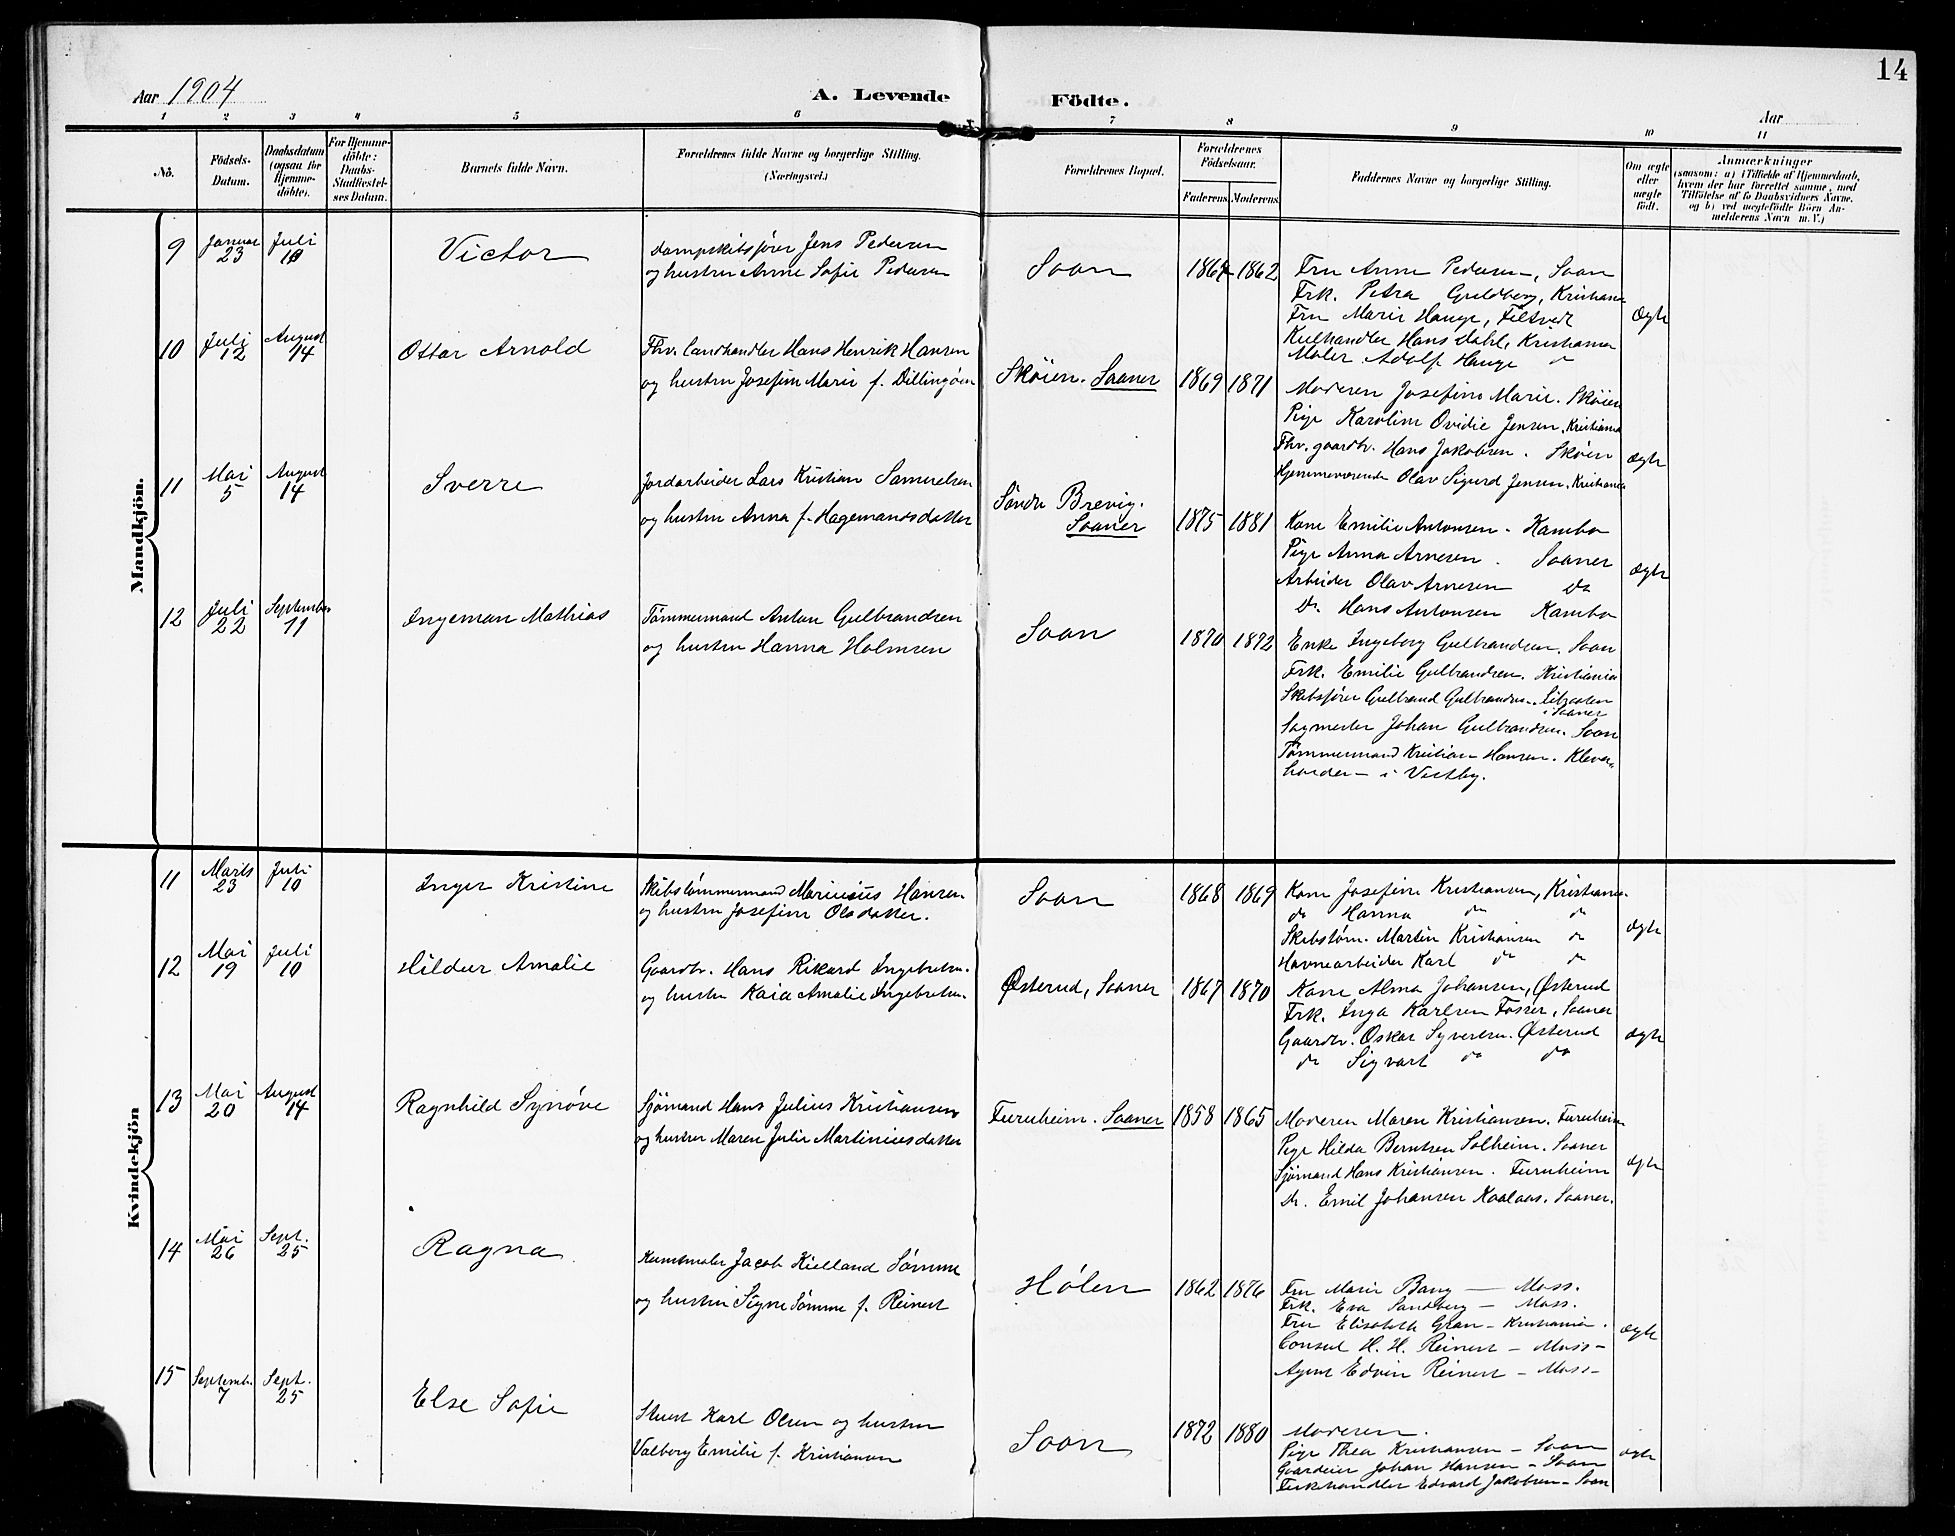 14
Aar 1904
A. Levende Födte.
Aar
1 2 3 4 5 6 7 8 9 10 11
No.
Födsels-
Datum.
Daabsdatum
(ogsaa for
Hjemme-
döbte).
For Hjemme-
döbte:
Daabs-
Stadfæstel-
ses Datum.
Barnets fulde Navn.
Forældrenes fulde Navne og borgerlige Stilling.
(Næringsvei.)
Forældrenes Bopæl.
Forældrenes
Födselsaar.
Faderens Moderens
Faddernes Navne og borgerlige Stilling.
Om ægte
eller
uægte
födt.
Anmærkninger
(saasom: a) i Tilfælde af Hjemmedaab,
hvem der har forrettet samme, med
Tilföielse af to Daabsvidners Navne.
og b) ved uægtefödte Börn An-
melderens Navn m. V.)
Mandkjön.
9 Januar 23 Juli 10 Victor
Dampskibsfører Jens Pedersen
og hustru Anne Sofie Pedersen
Soon 1864 1862
Fru Anne Pedersen, Soon
Frk. Petra Guldberg, Kristiania
Fru Marie Hauge, Filtvedt
Kulhandler Hans Dahl, Kristiania
Maler Adolf Hauge do
Ægte
10 Juli 12 August 14 Ottar Arnold
Fhv. landhandler Hans Henrik Hansen
og hustru Josefine Marie f. Dillingøen
Skøien. Saaner 1869 1871
Moderen Josefine Marie. Skøien
Pige Karoline Ovidie Jensen, Kristiania
Fhv. gaardbr. Hans Jakobsen. Skøien
Hjemmeværende Olav Sigurd Jensen, Kristiania
ægte
11 Mai 5 August 14 Sverre
Jordarbeider Lars Kristian Samuelsen
og hustru Anna f. Hagemansdatter
Søndre Brevig.
Saaner
1875 1881
Kone Emilie Antonsen. Kambo
Pige Anna Arnesen. Saaner
Arbeider Olav Arnesen do
Do Hans Antonsen Kambo
ægte
12 Juli 22 September 11 Ingeman Mathias
Tømmermand Anton Gulbrandsen
og hustru Hanna Holmsen
Soon 1870 1872
Enke Ingeborg Gulbrandsen. Soon
Frk. Emilie Gulbrandsen. Kristiania
Skibsfører Gulbrand Gulbrandsen.
i Saaner
Sagmester Johan Gulbrandsen. Soon
Tømmermand Kristian Hansen. Klever-
huset i Vestby.
Kvindekjön
11 Marts 23 Juli 10 Inger Kristine
Skibstømmermand Marinius Hansen
og hustru Josefine Olsdatter.
Soon 1868 1869
Kone Josefine Kristiansen, Kristiania.
do Hanna do do
Skibstøm. Martin Kristiansen do
Havnearbeider Karl do do
ægte
12 Mai 19 Juli 10 Hildur Amalie
Gaardbr. Hans Rikard Ingebretsen.
og hustru Kaia Amalie Ingebretsen.
Østerud, Saaner 1867 1870
Kone Alma Johansen, Østerud
Frk. Inga Karlsen Fosser, Saaner
Gaardbr. Oskar Syversen. Østerud
do Sigvart do do
ægte
13 Mai 20 August 14 Ragnhild Synøve
Sjømand Hans Julius Kristiansen
og hustru Maren Julie Martiniusdatter
Furuheim. Saaner 1858 1865
Moderen Maren Kristiansen. Furuheim
Pige Hilda Berntsen Solheim. Saaner
Sjømand Hans Kristiansen. Furuheim
Do. Emil Johansen Kaalaas. Saaner.
ægte
14 Mai 26 Sept. 25 Ragna
Kunstmaler Jacob Kielland Sømme
og hustru Signe Sømme f. Reinert
Hølen 1862 1876
Fru Marie Bang — Moss.
Frk. Eva Sandberg — Moss.
Fru Elisabeth Gran — Kristiania.
Consul H. H. Reinert — Moss —
Agent Edvin Reinert — Moss —
ægte
15 Septemb. 7 Sept. 25 Else Sofie
Stuert Karl Olsen og hustru
Valborg Emilie f. Kristiansen
Soon 1872 1880
Moderen.
Pige Thea Kristiansen — Soon
Gaardeier Johan Hansen — Soon
Fiskehandler Edvard Jakobsen — Soon
ægte